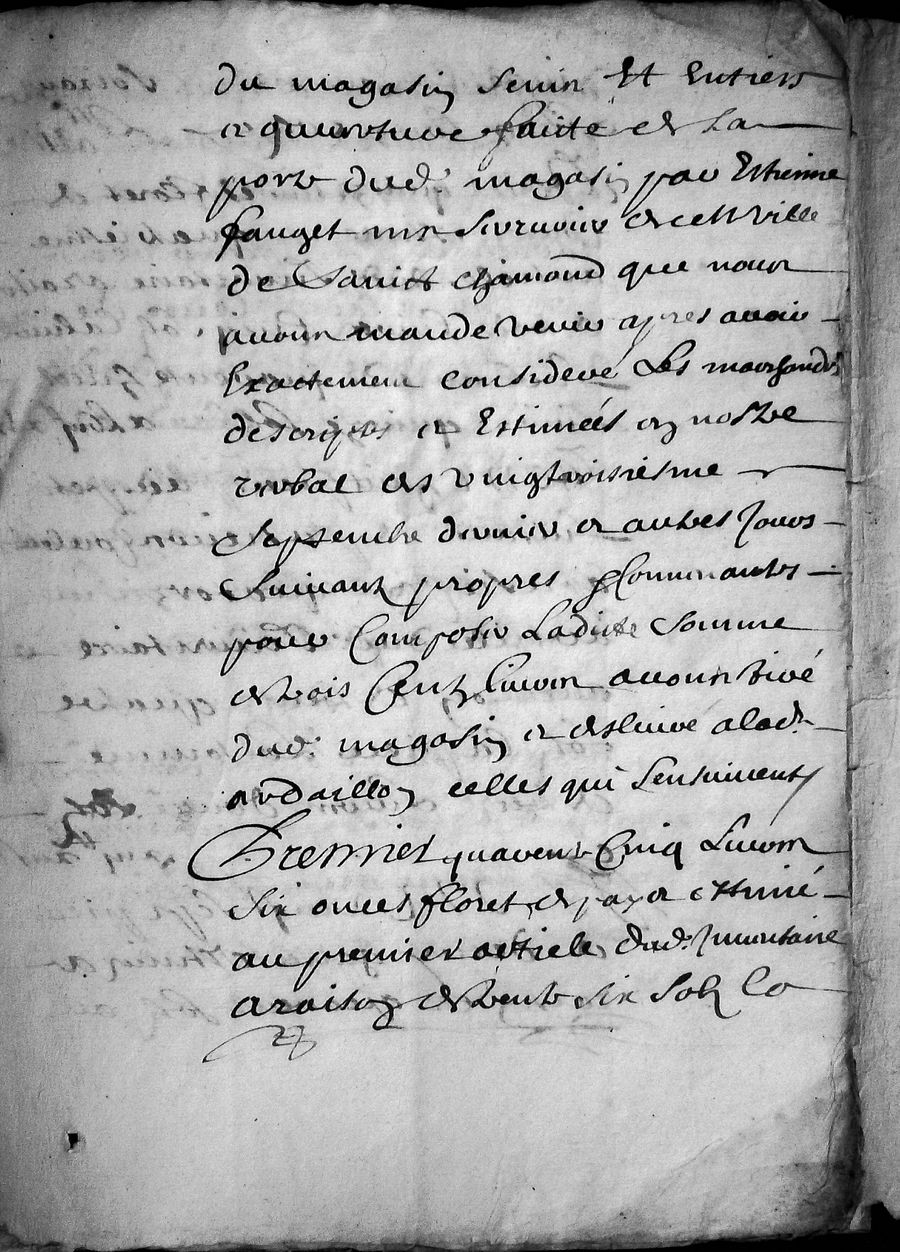 du magasin senin Et Entiers
et ouverture faitte de La
porte dud. magasin par Estienne
fauget mre serrurier de cett ville
de Sainct chamond que nour
avons mande venir apres avoir
Exactement consideré Les marchandes
descriptes et Estimées en nostre
verbal du vingtroisiesme
Septembre dernier et autres Jours
suivant propres
pour Composer Laditte somme
de trois Centz livres avons tiré
dud. magasin et deslivré a lad.
ardaillon celles qui sensuivent
Premier quarente Cinq Livres
six onces floret de pays estimé
au premier article dud. Inventaire
a raison de trente six solz La